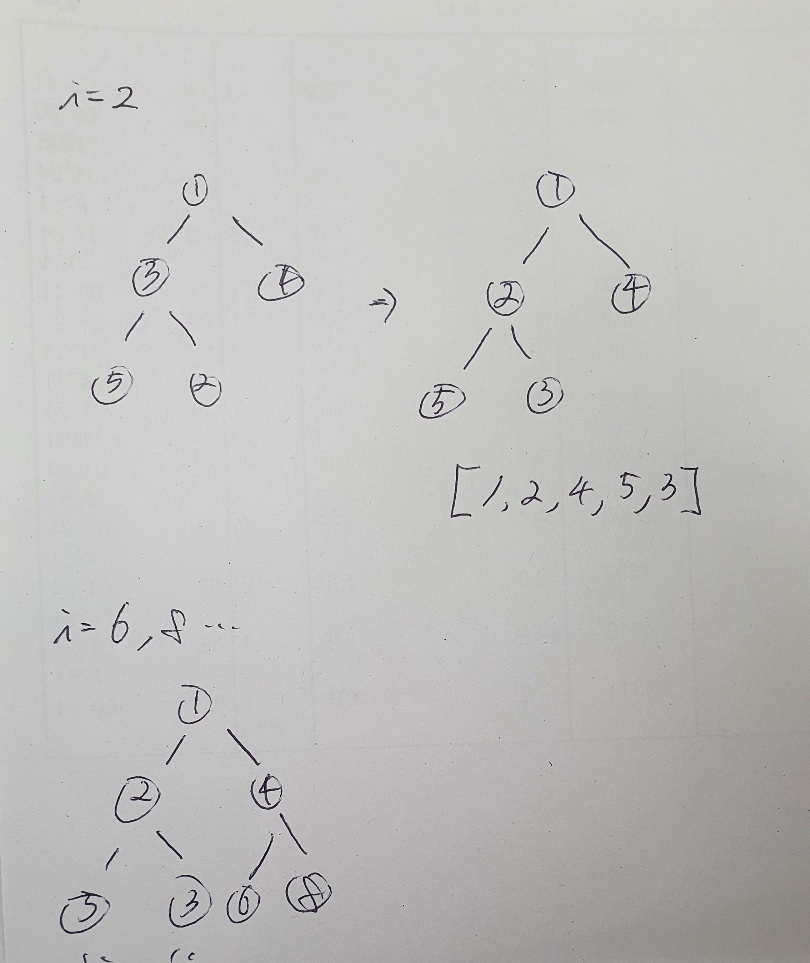 i=2
① ①
③ ④ ⇒ ② ④
⑤ ② ⑤ ③
[1,2,4,5,3]
i=6,8...
①
② ④
⑤ ③ ⑥ ⑧